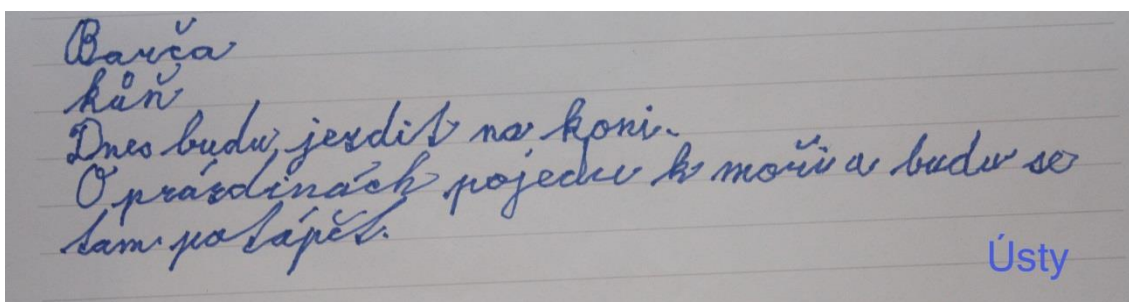 Barča
kůň
Dnes budu jezdit na koni.
O prázdinách pojedu k moři a budu se
tam potápět.
Ústy